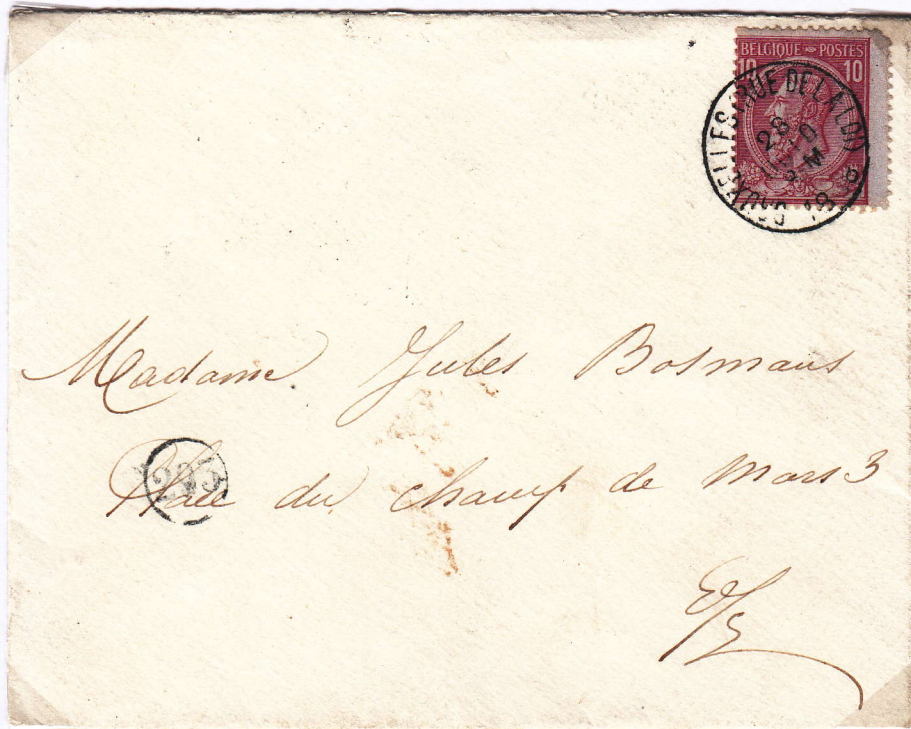 BELGIQUE - POSTES
10 10
BRUXELLES (RUE DE LA LOI)
28
Madame Jules Bosmans
Place du champ de Mars 3
E/V